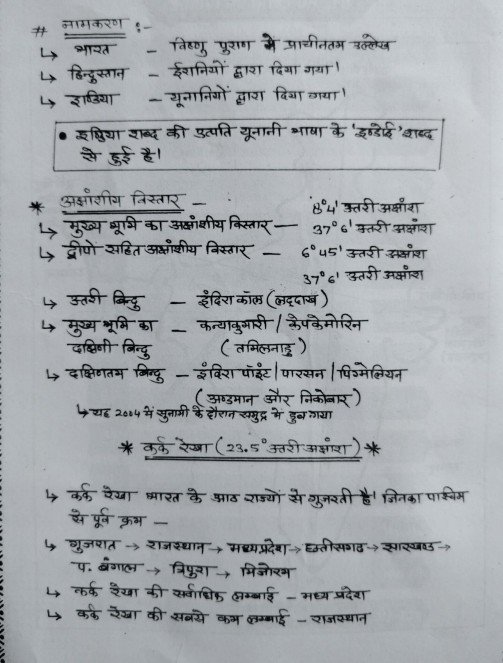 # नामकरण :-
↳ भारत – विष्णु पुराण मे प्राचीनतम उल्लेख
↳ हिन्दुस्तान – ईरानियों द्वारा दिया गया।
↳ इण्डिया – यूनानियों द्वारा दिया गया।
• इण्डिया शब्द की उत्पति यूनानी भाषा के 'इण्डोई' शब्द
से हुई है।
* अक्षांशीय विस्तार –
8°4' उत्तरी अक्षांश
↳ मुख्य भूमि का अक्षांशीय विस्तार – 37°6' उत्तरी अक्षांश
↳ द्वीपो सहित अक्षांशीय विस्तार – 6°45' उत्तरी अक्षांश
37°6' उत्तरी अक्षांश
↳ उत्तरी बिन्दु – इंदिरा कॉल (लद्दाख)
↳ मुख्य भूमि का – कन्याकुमारी / कैपकेमोरिन
दक्षिणी बिन्दु (तमिलनाडु)
↳ दक्षिणतम बिन्दु – इंदिरा पॉइंट | पारसन | पिग्मेलियन
(अण्डमान और निकोबार)
↳ यह 2004 में सुनामी के दौरान समुद्र मे डुब गया
* कर्क रेखा (23.5° उत्तरी अक्षांश) *
↳ कर्क रेखा भारत के आठ राज्यों से गुजरती है। जिनका पश्चिम
से पूर्व क्रम –
↳ गुजरात → राजस्थान → मध्यप्रदेश → छत्तीसगढ → झारखण्ड →
प. बंगाल → त्रिपुरा → मिजोरम
↳ कर्क रेखा की सर्वाधिक लम्बाई – मध्य प्रदेश
↳ कर्क रेखा की सबसे कम लम्बाई – राजस्थान